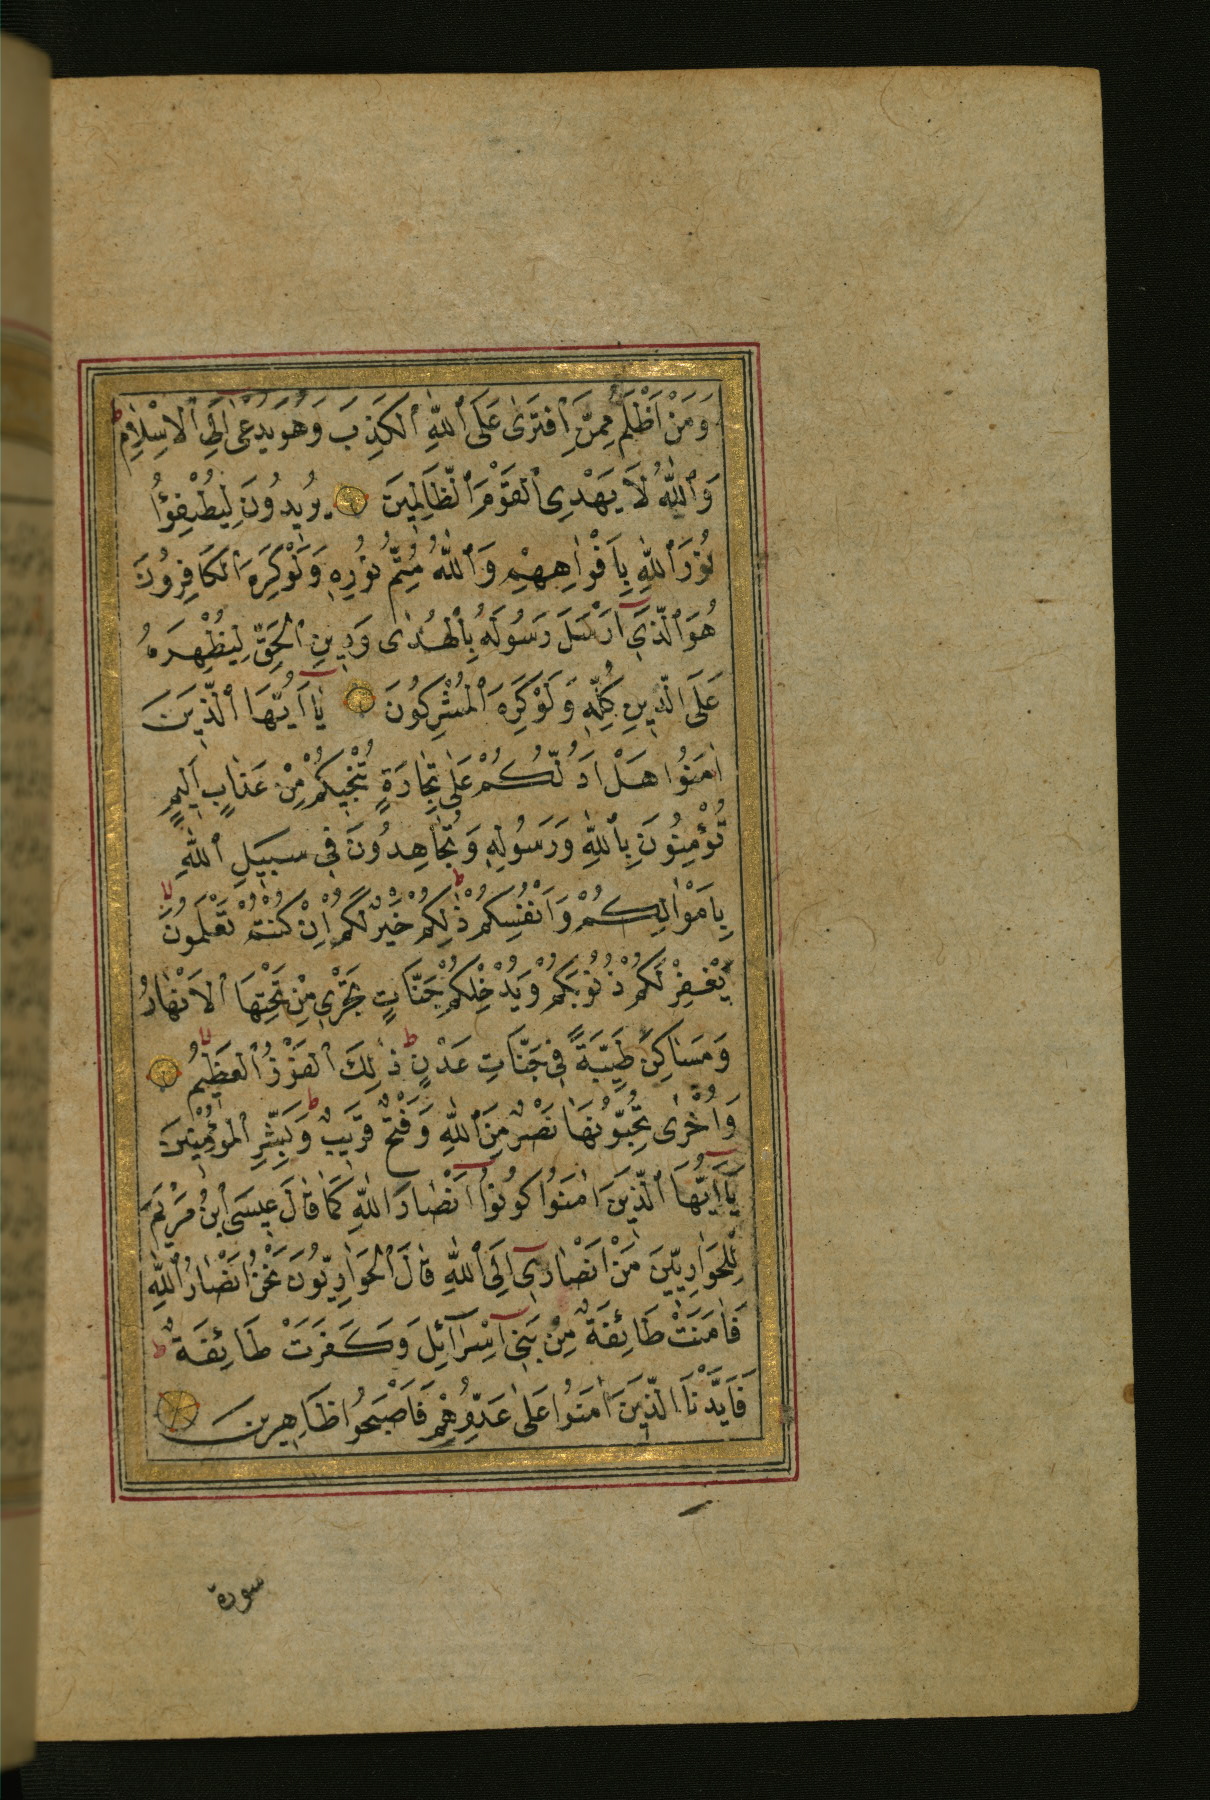 وَمَنْ اَظْلَمُ مِمَّنِ ٱفْتَرٰى عَلَى ٱللّٰهِ ٱلْكَذِبَ وَهُوَ يُدْعٰى اِلَى ٱلْاِسْلَامِ ط
وَٱللّٰهُ لَا يَهْدِى ٱلْقَوْمَ ٱلظَّالِمِينَ يُرِيدُونَ لِيُطْفِؤُا
نُورَ ٱللّٰهِ بِاَفْوَاهِهِمْ وَٱللّٰهُ مُتِمُّ نُورِهِ وَلَوْ كَرِهَ ٱلْكَافِرُونَ
هُوَ ٱلَّذِىٓ اَرْسَلَ رَسُولَهُ بِٱلْهُدٰى وَدِينِ ٱلْحَقِّ لِيُظْهِرَهُ
عَلَى ٱلدِّينِ كُلِّهِ وَلَوْ كَرِهَ ٱلْمُشْرِكُونَ يَآ اَيُّهَا ٱلَّذِينَ
اٰمَنُوا هَلْ اَدُلُّكُمْ عَلٰى تِجَارَةٍ تُنْجِيكُمْ مِنْ عَذَابٍ اَلِيمٍ
تُؤْمِنُونَ بِٱللّٰهِ وَرَسُولِهِ وَتُجَاهِدُونَ فِى سَبِيلِ ٱللّٰهِ
بِاَمْوَالِكُمْ وَاَنْفُسِكُمْ ط ذٰلِكُمْ خَيْرٌ لَكُمْ اِنْ كُنْتُمْ تَعْلَمُونَ لا
يَغْفِرْ لَكُمْ ذُنُوبَكُمْ وَيُدْخِلْكُمْ جَنَّاتٍ تَجْرِى مِنْ تَحْتِهَا ٱلْاَنْهَارُ
وَمَسَاكِنَ طَيِّبَةً فِى جَنَّاتِ عَدْنٍ ط ذٰلِكَ ٱلْفَوْزُ ٱلْعَظِيمُ لا
وَاُخْرٰى تُحِبُّونَهَا نَصْرٌ مِنَ ٱللّٰهِ وَفَتْحٌ قَرِيبٌ ط وَبَشِّرِ ٱلْمُؤْمِنِينَ
يَآ اَيُّهَا ٱلَّذِينَ اٰمَنُوا كُونُوٓا اَنْصَارَ ٱللّٰهِ كَمَا قَالَ عِيسَى ٱبْنُ مَرْيَمَ
لِلْحَوَارِيِّينَ مَنْ اَنْصَارِىٓ اِلَى ٱللّٰهِ قَالَ ٱلْحَوَارِيُّونَ نَحْنُ اَنْصَارُ ٱللّٰهِ
فَاٰمَنَتْ طَآئِفَةٌ مِنْ بَنِىٓ اِسْرَآئِلَ وَكَفَرَتْ طَآئِفَةٌ ط
فَاَيَّدْنَا ٱلَّذِينَ اٰمَنُوا عَلٰى عَدُوِّهِمْ فَاَصْبَحُوا ظَاهِرِينَ
سورة